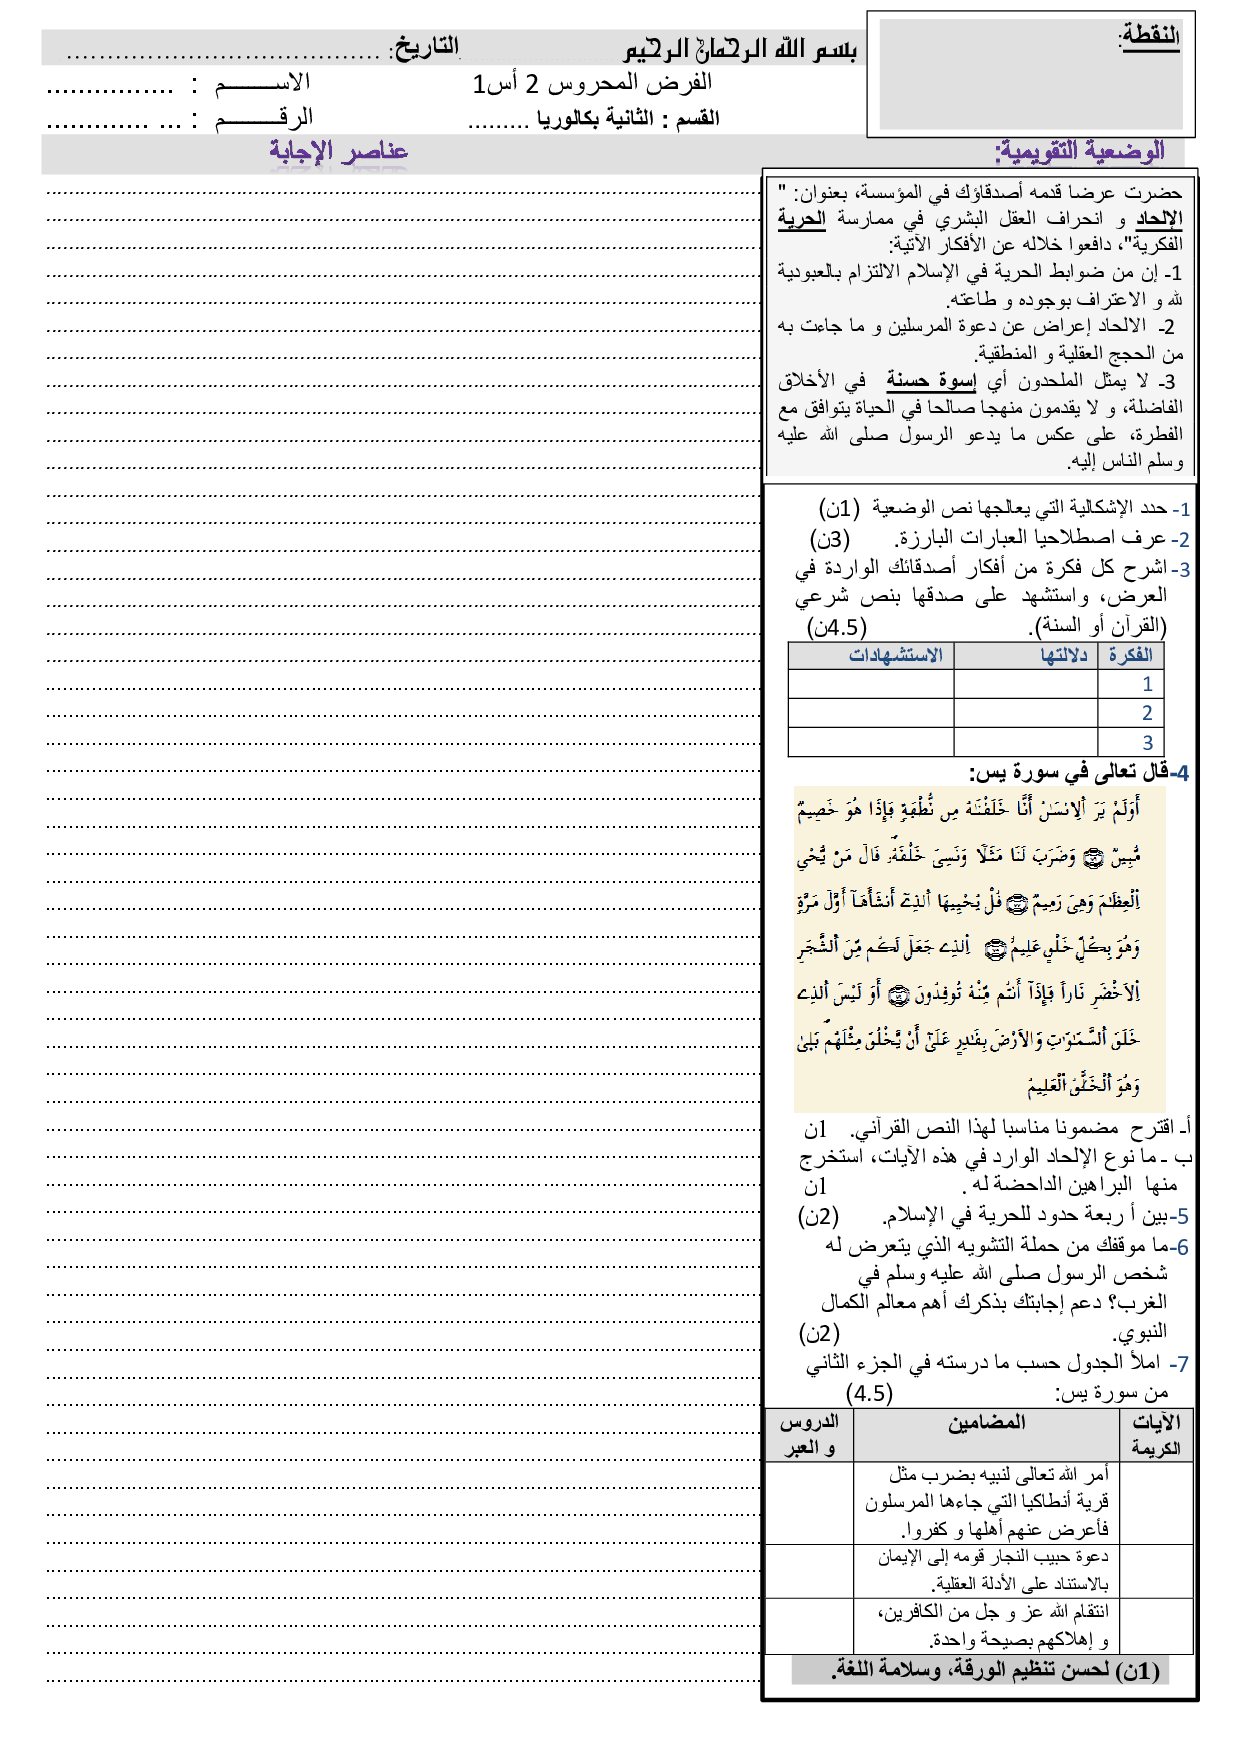 النقطة:
بسم الله الرحمان الرحيم التاريخ: ......................................
الفرض المحروس 2 أس1 الاســــــم : ................
القسم : الثانية بكالوريا ......... الرقــــــم : ... .............
الوضعية التقويمية: عناصر الإجابة
حضرت عرضا قدمه أصدقاؤك في المؤسسة، بعنوان: "
الإلحاد و انحراف العقل البشري في ممارسة الحرية
الفكرية"، دافعوا خلاله عن الأفكار الآتية:
1- إن من ضوابط الحرية في الإسلام الالتزام بالعبودية
لله و الاعتراف بوجوده و طاعته.
2- الالحاد إعراض عن دعوة المرسلين و ما جاءت به
من الحجج العقلية و المنطقية.
3- لا يمثل الملحدون أي إسوة حسنة في الأخلاق
الفاضلة، و لا يقدمون منهجا صالحا في الحياة يتوافق مع
الفطرة، على عكس ما يدعو الرسول صلى الله عليه
وسلم الناس إليه.
1- حدد الإشكالية التي يعالجها نص الوضعية (1ن)
2- عرف اصطلاحيا العبارات البارزة. (3ن)
3- اشرح كل فكرة من أفكار أصدقائك الواردة في
العرض، واستشهد على صدقها بنص شرعي
(القرآن أو السنة). (4.5ن)
الفكرة دلالتها الاستشهادات
1
2
3
4- قال تعالى في سورة يس:
أَوَلَمْ يَرَ اَلِانسَٰنُ أَنَّا خَلَقْنَٰهُ مِن نُّطْفَةٍ فَإِذَا هُوَ خَصِيمٌ
مُّبِينٌ ۝ وَضَرَبَ لَنَا مَثَلًا وَنَسِيَ خَلْقَهُۥ قَالَ مَنْ يُّحْيِ
اِلْعِظَٰمَ وَهِيَ رَمِيمٌ ۝ قُلْ يُحْيِيهَا اَلذِے أَنشَأَهَآ أَوَّلَ مَرَّةٍ
وَهُوَ بِكُلِّ خَلْقٍ عَلِيمٌ ۝ اِلذِے جَعَلَ لَكُم مِّنَ اَلشَّجَرِ
اِلَاخْضَرِ نَاراً فَإِذَآ أَنتُم مِّنْهُ تُوقِدُونَ ۝ أَوَ لَيْسَ اَلذِے
خَلَقَ اَلسَّمَٰوَٰتِ وَالَارْضَ بِقَٰدِرٍ عَلَىٰٓ أَنْ يَّخْلُقَ مِثْلَهُم بَلَىٰ
وَهُوَ اَلْخَلَّٰقُ اَلْعَلِيمُ
أـ اقترح مضمونا مناسبا لهذا النص القرآني. 1ن
ب ـ ما نوع الإلحاد الوارد في هذه الآيات، استخرج
منها البراهين الداحضة له . 1ن
5- بين أ ربعة حدود للحرية في الإسلام. (2ن)
6- ما موقفك من حملة التشويه الذي يتعرض له
شخص الرسول صلى الله عليه وسلم في
الغرب؟ دعم إجابتك بذكرك أهم معالم الكمال
النبوي. (2ن)
7- املأ الجدول حسب ما درسته في الجزء الثاني
من سورة يس: (4.5)
الآيات الكريمة المضامين الدروس و العبر
أمر الله تعالى لنبيه بضرب مثل
قرية أنطاكيا التي جاءها المرسلون
فأعرض عنهم أهلها و كفروا.
دعوة حبيب النجار قومه إلى الإيمان
بالاستناد على الأدلة العقلية.
انتقام الله عز و جل من الكافرين،
و إهلاكهم بصيحة واحدة.
(1ن) لحسن تنظيم الورقة، وسلامة اللغة.